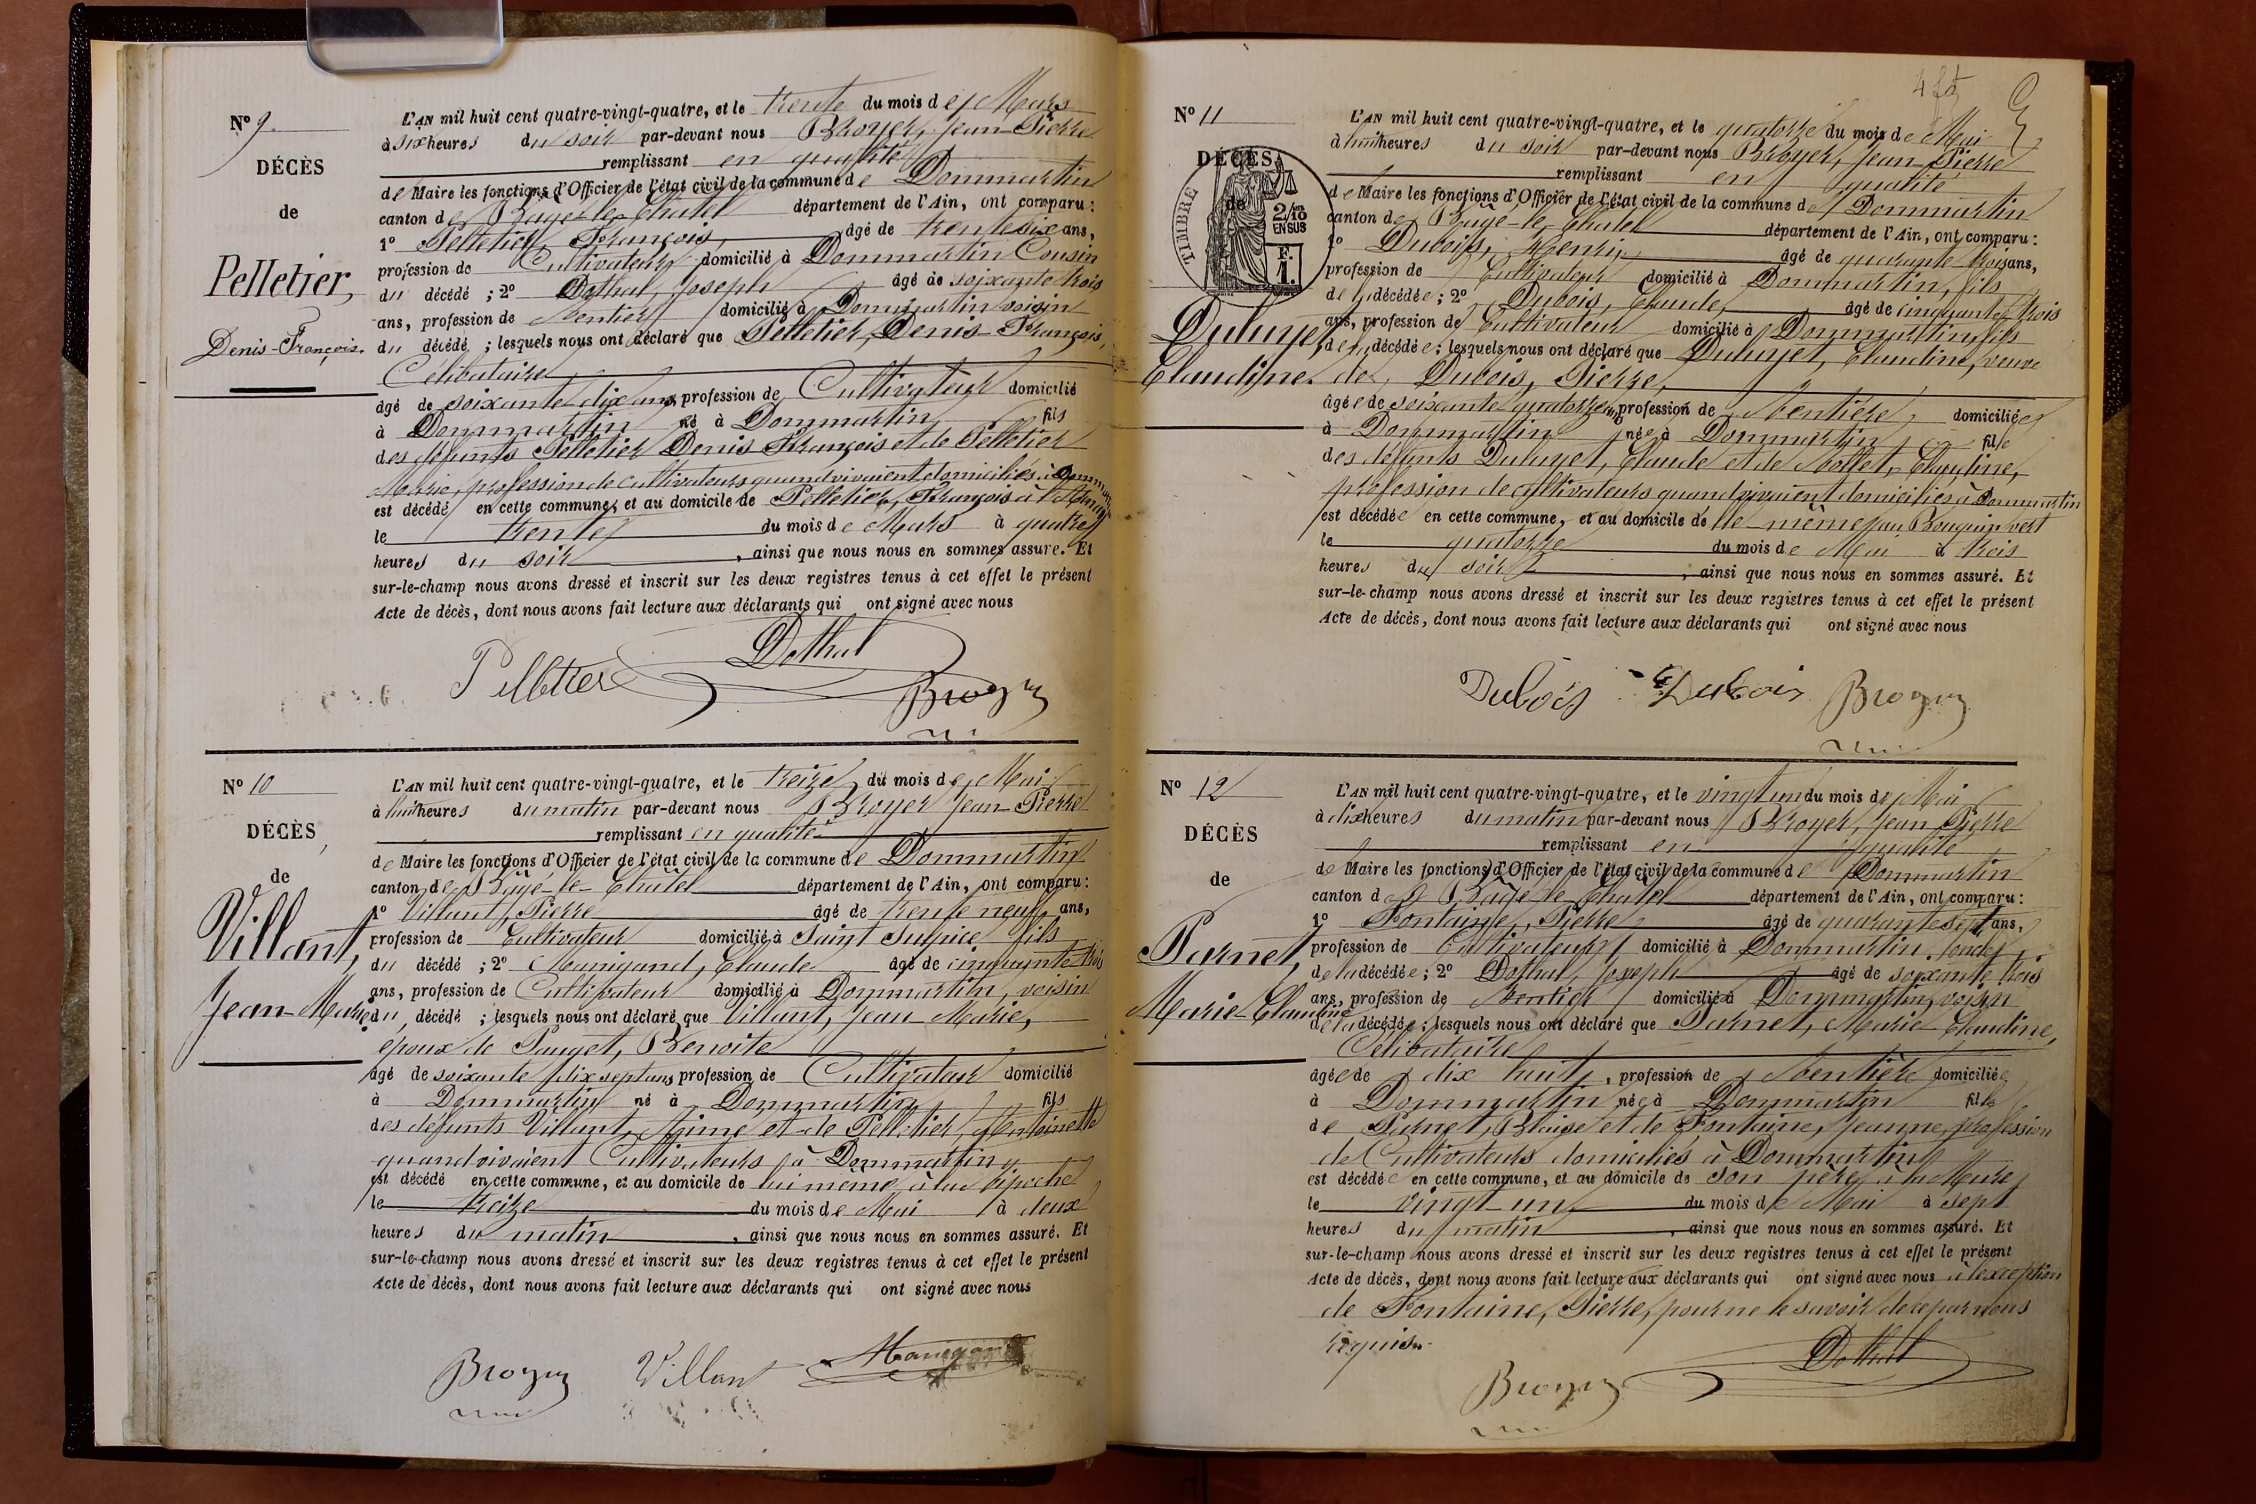 Nº 9.
DÉCÈS
de
Pelletier,
Denis-François.
L'AN mil huit cent quatre-vingt-quatre, et le trente du mois de Mars
à six heures du soir par-devant nous Broyer, Jean-Pierre
remplissant en qualité
de Maire les fonctions d'Officier de l'état civil de la commune de Dommartin
canton de Bagé-le-Châtel département de l'Ain, ont comparu :
1º Pelletier, François, âgé de trente six ans,
profession de Cultivateur domicilié à Dommartin Cousin
du décédé ; 2º Dothal, Joseph âgé de soixante trois
ans, profession de Rentier domicilié à Dommartin voisin
du décédé ; lesquels nous ont déclaré que Pelletier, Denis-François,
Célibataire
âgé de soixante dix ans, profession de Cultivateur domicilié
à Dommartin né à Dommartin fils
des défunts Pelletier Denis François et de Pelletier
Marie, profession de cultivateurs quand vivaient domiciliés à Dommartin
est décédé en cette commune, et au domicile de Pelletier, François à
le trente du mois de Mars à quatre
heures du soir , ainsi que nous nous en sommes assuré. Et
sur-le-champ nous avons dressé et inscrit sur les deux registres tenus à cet effet le présent
Acte de décès, dont nous avons fait lecture aux déclarants qui ont signé avec nous
Pelletier Dothal
Broyer
Nº 10
DÉCÈS
de
Villant,
Jean-Marie
L'AN mil huit cent quatre-vingt-quatre, et le treize du mois de Mai
à huit heures du matin par-devant nous Broyer Jean-Pierre
remplissant en qualité
de Maire les fonctions d'Officier de l'état civil de la commune de Dommartin
canton de Bâgé-le-Châtel département de l'Ain, ont comparu :
1º Villant, Pierre âgé de trente neuf ans,
profession de Cultivateur domicilié à Saint Sulpice fils
du décédé ; 2º Manigand, Claude âgé de cinquante trois
ans, profession de Cultivateur domicilié à Dommartin, voisin
du décédé ; lesquels nous ont déclaré que Villant, Jean Marie,
époux de Pauget, Benoîte
âgé de soixante dix sept ans profession de Cultivateur domicilié
à Dommartin né à Dommartin fils
des défunts Villant, Aimé et de Pelletier, Antoinette
quand vivaient Cultivateurs à Dommartin
est décédé en cette commune, et au domicile de lui même, à la
le treize du mois de Mai à deux
heures du matin , ainsi que nous nous en sommes assuré. Et
sur-le-champ nous avons dressé et inscrit sur les deux registres tenus à cet effet le présent
Acte de décès, dont nous avons fait lecture aux déclarants qui ont signé avec nous
Broyer Villant Manigand
Nº 11
DÉCÈS
de
TIMBRE
2/10 EN SUS
F. 1.
Duluyet,
Claudine.
L'AN mil huit cent quatre-vingt-quatre, et le quatorze du mois de Mai
à huit heures du soir par-devant nous Broyer, Jean Pierre
remplissant en qualité
de Maire les fonctions d'Officier de l'état civil de la commune de Dommartin
canton de Bâgé-le-Châtel département de l'Ain, ont comparu :
1º Dubois, Henri, âgé de quarante trois ans,
profession de Cultivateur domicilié à Dommartin, fils
de la décédée ; 2º Dubois, Claude, âgé de cinquante trois
ans, profession de Cultivateur domicilié à Dommartin fils
de la décédée ; lesquels nous ont déclaré que Duluyet, Claudine, veuve
de Dubois, Pierre,
âgée de soixante quatorze ans profession de Rentière, domiciliée
à Dommartin née à Dommartin fille
des défunts Duluyet, Claude et de Nollet, Claudine,
profession de cultivateurs quand vivaient domiciliés à Dommartin
est décédée en cette commune, et au domicile de elle-même, au Bouquin vert
le quatorze du mois de Mai à trois
heures du soir , ainsi que nous nous en sommes assuré. Et
sur-le-champ nous avons dressé et inscrit sur les deux registres tenus à cet effet le présent
Acte de décès, dont nous avons fait lecture aux déclarants qui ont signé avec nous
Dubois Dubois Broyer
Nº 12
DÉCÈS
de
Parnet,
Marie-Claudine
L'AN mil huit cent quatre-vingt-quatre, et le vingt un du mois de Mai
à dix heures du matin par-devant nous Broyer, Jean Pierre
remplissant en qualité
de Maire les fonctions d'Officier de l'état civil de la commune de Dommartin
canton de Bâgé-le-Châtel département de l'Ain, ont comparu :
1º Fontaine, Pierre âgé de quarante sept ans,
profession de Cultivateur domicilié à Dommartin, oncle
de la décédée ; 2º Dothal, Joseph âgé de soixante trois
ans, profession de Rentier domicilié à Dommartin, voisin
de la décédée ; lesquels nous ont déclaré que Parnet, Marie Claudine,
Célibataire
âgée de dix huit , profession de Rentière domiciliée
à Dommartin née à Dommartin fille
de Parnet, Blaise et de Fontaine, Jeanne, profession
de Cultivateurs domiciliés à Dommartin
est décédée en cette commune, et au domicile de son père, à la Mure
le vingt un du mois de Mai à sept
heures du matin , ainsi que nous nous en sommes assuré. Et
sur-le-champ nous avons dressé et inscrit sur les deux registres tenus à cet effet le présent
Acte de décès, dont nous avons fait lecture aux déclarants qui ont signé avec nous à l'exception
de Fontaine, Pierre, pour ne le savoir de ce par nous
requis
Broyer Dothal